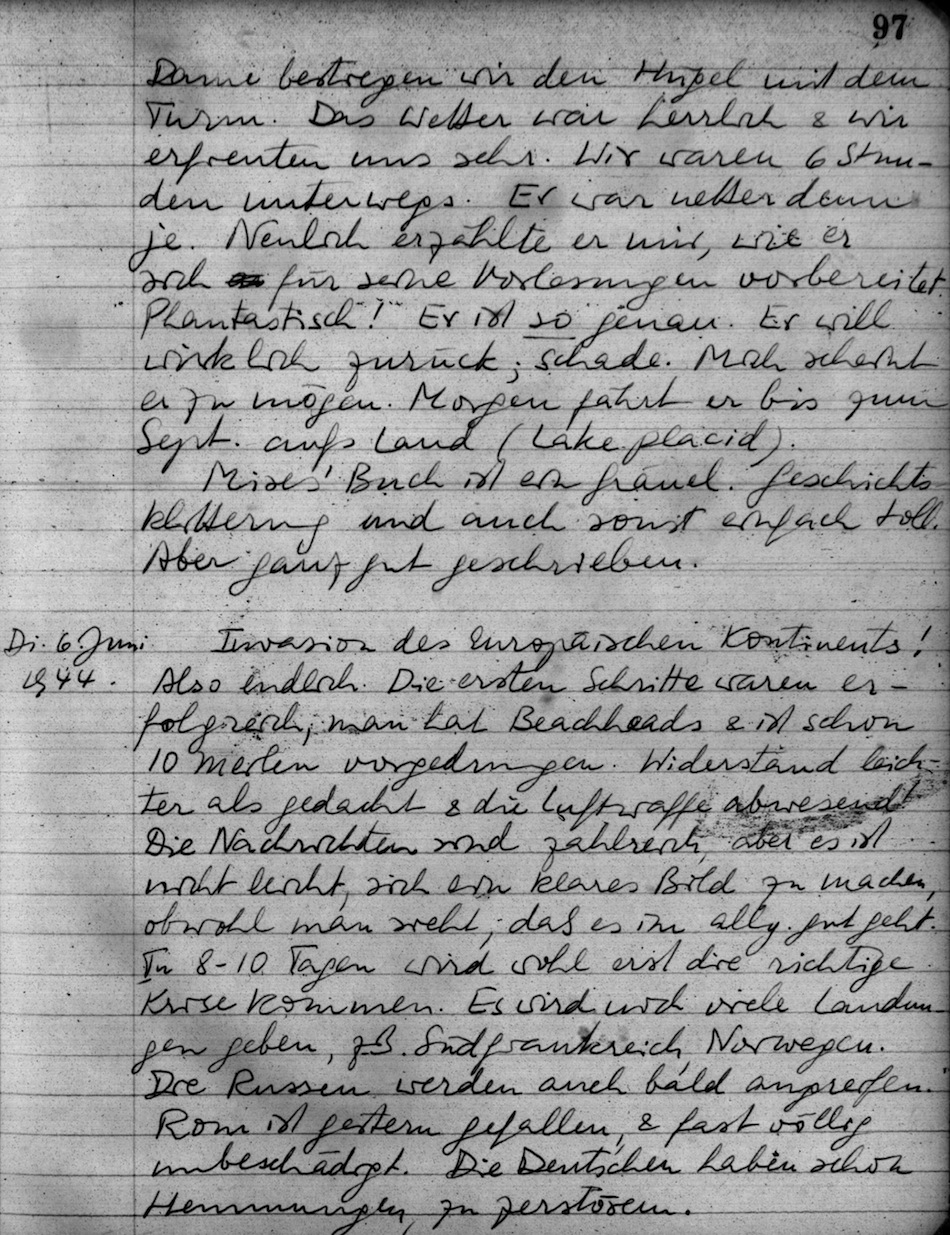 97
Dann bestiegen wir den Hügel mit dem
Turm. Das Wetter war herrlich & wir
erfreuten uns sehr. Wir waren 6 Stun-
den unterwegs. Er war netter denn
je. Neulich erzählte er mir, wie er
sich für seine Vorlesungen vorbereitet.
Phantastisch! Er ist so genau. Er will
wirklich zurück; schade. Mich scheint
er zu mögen. Morgen fährt er bis zum
Sept. aufs Land (Lake placid).
Mises' Buch ist ein Gräuel. Geschichts
klitterung und auch sonst einfach toll.
Aber ganz gut geschrieben.
Di. 6. Juni Invasion des Europäischen Kontinents!
1944. Also endlich. Die ersten Schritte waren er-
folgreich, man hat Beachheads & ist schon
10 Meilen vorgedrungen. Widerstand leich-
ter als gedacht & die Luftwaffe abwesend!
Die Nachrichten sind zahlreich, aber es ist
nicht leicht, sich ein klares Bild zu machen,
obwohl man sieht, daß es im allg. gut geht.
In 8-10 Tagen wird wohl erst die richtige
Krise kommen. Es wird noch viele Landun-
gen geben, z.B. Südfrankreich, Norwegen.
Die Russen werden auch bald angreifen.
Rom ist gestern gefallen, & fast völlig
unbeschädigt. Die Deutschen haben schon
Hemmungen, zu zerstören.